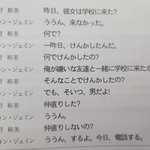 野 裕美　昨日、彼女は学校に来た?
ャン・ジェミン　ううん、来なかった。
野 裕美　何で?
ャン・ジェミン　一昨日、けんかしたんだ。
野 裕美　何でけんかしたの?
ャン・ジェミン　俺が嫌いな友達と一緒に学校に来たか
野 裕美　そんなことでけんかしたの?
ャン・ジェミン　でも、そいつ、男だよ!
野 裕美　仲直りした?
ャン・ジェミン　ううん。
野 裕美　仲直りしないの?
ャン・ジェミン　ううん、するよ。今日、電話する。